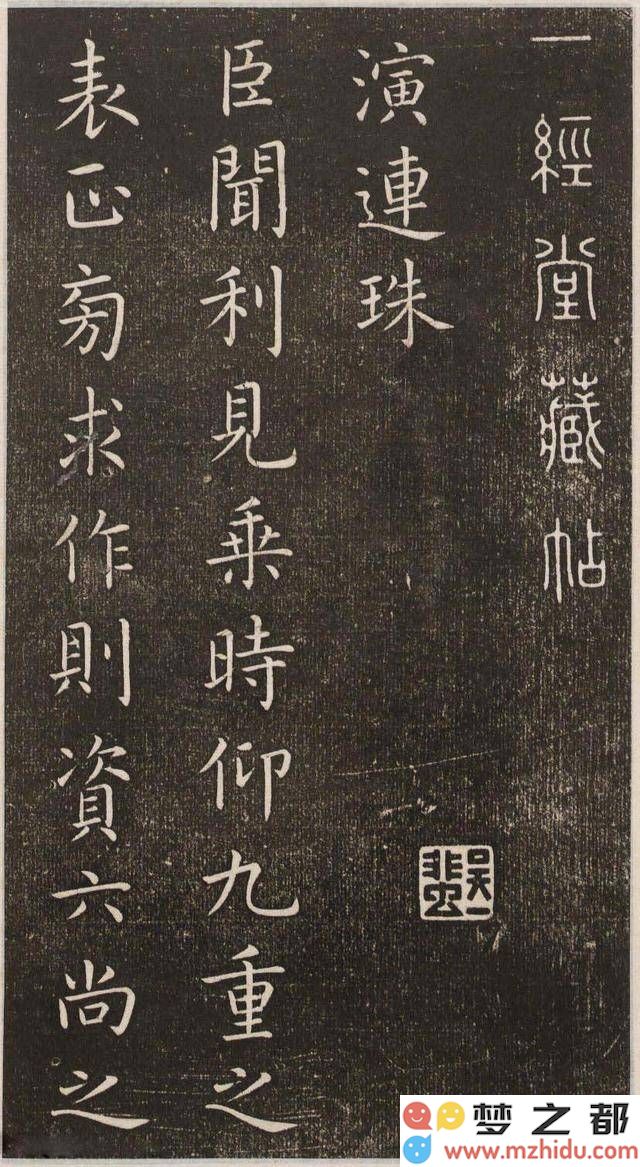 一經堂藏帖
演連珠
臣聞利見乗時仰九重之
表正旁求作則資六尚之
吴一蜚
梦之都
www.mzhidu.com